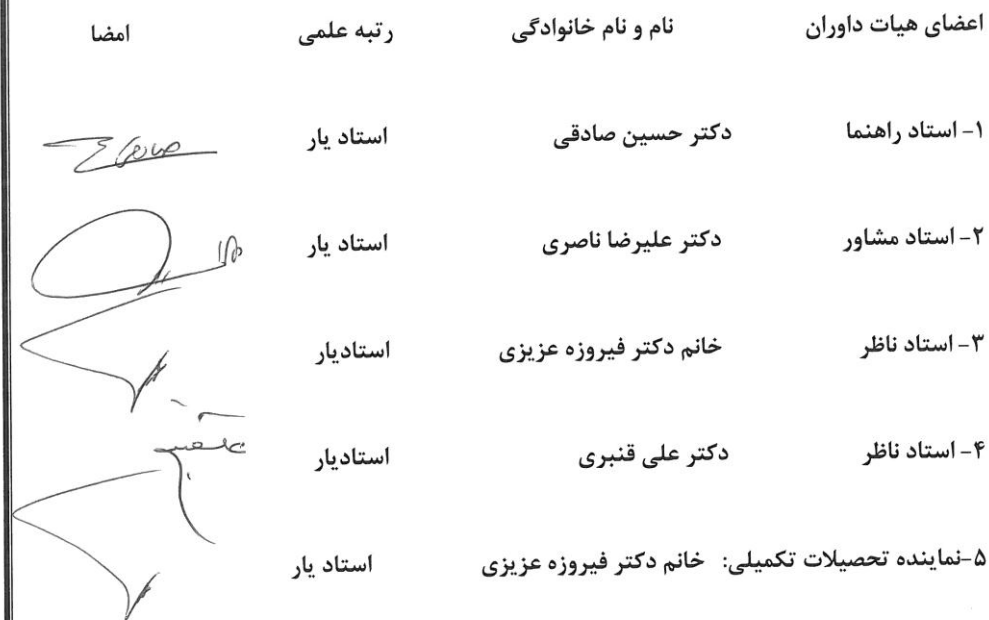 اعضای هیات داوران نام و نام خانوادگی رتبه علمی امضا
۱- استاد راهنما دکتر حسین صادقی استاد یار
۲- استاد مشاور دکتر علیرضا ناصری استاد یار
۳- استاد ناظر خانم دکتر فیروزه عزیزی استادیار
۴- استاد ناظر دکتر علی قنبری استادیار
۵-نماینده تحصیلات تکمیلی: خانم دکتر فیروزه عزیزی استاد یار